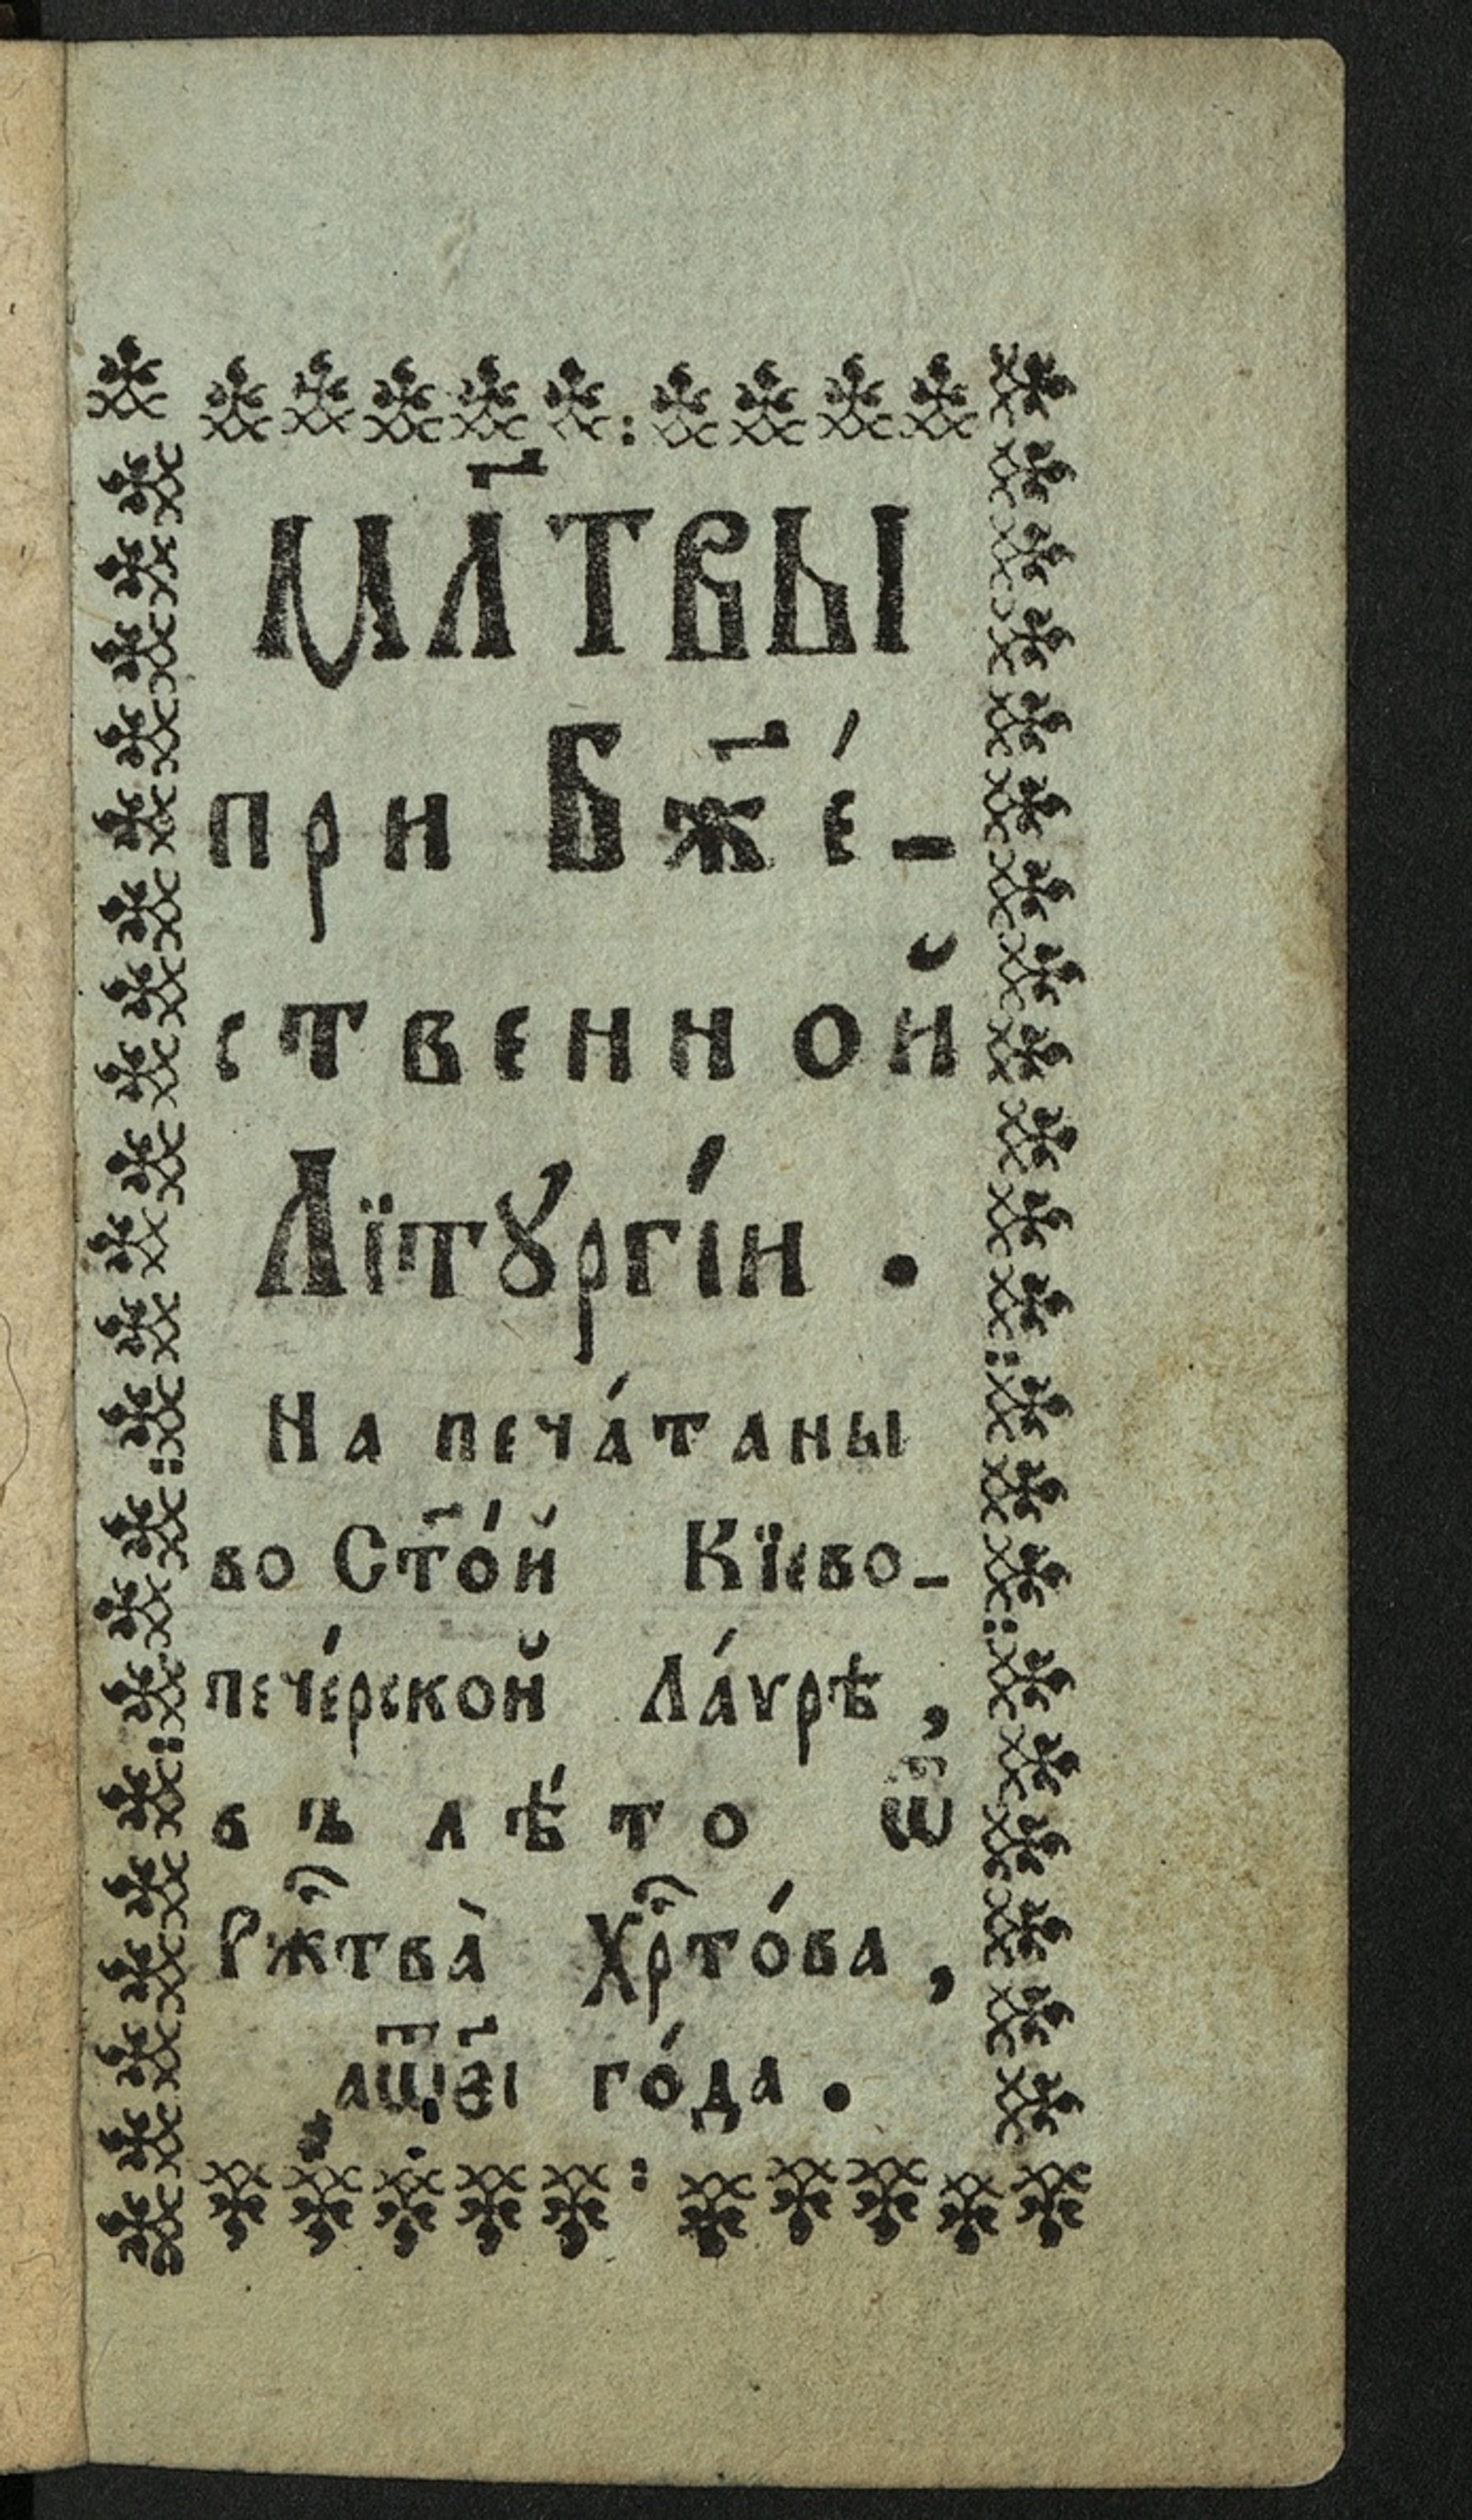 Мл҃твы
при Бж҃е́-
ственной
Лїтꙋргі́и .
На печа́таны
во Ст҃о́й Кїево-
пече́рской Ла́ѵрѣ ,
въ лѣ́то ѿ
Рж҇тва̀ Хр҇то́ва ,
го́да .